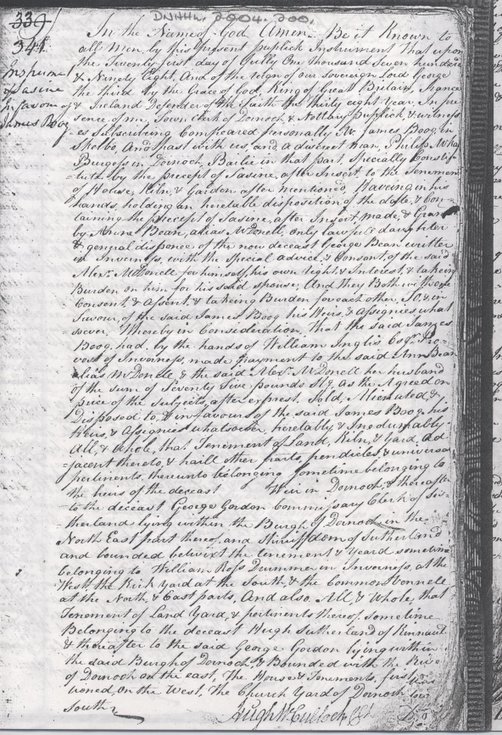 339
DNHHL. 2004. 200.
341
Instrument
of Sasine
in favour of
James Boog
In the Name of God Amen. Be it Known to
all Men by this present publick Instrument That upon
the Twenty first day of One thousand Seven hundred
& Ninety Eight, And of the reign of our Sovereign Lord George
the third by the Grace of God, King of Great Britain, France
& Ireland Defender of the faith the thirty eight year, In pre-
sence of me, Town Clerk of Dornoch & Nottary publick & witness-
es Subscribing Compeared personally Mr James Boog in
Skelbo, And past with us, and a discreet man, Philip
Burgess in Dornoch, Bailie in that part, Specially Constit-
ute by the precept of Sasine, after insert to the Tenement
of House, Kiln, & Garden after mentioned, Haveing in his
hands holding an heretable disposition of the date, & Con-
taining the precept of Sasine, after Insert made, & Granted
by Anne Bean, alias McDonell, only lawfull daughter
& general disponee of the now deceast George Bean writter
in Inverness, with the Special Advice, & Consent of the said
Alexr McDonell for himself, his own right, & Interest, & takeing
Burden on him for his said Spouse, And they Both with
Consent, & Assent & takeing Burden for each other, To, & in
favour, of the said James Boog his Heirs, & Assignees what
soever, Whereby in Consideration, That the said James
Boog, had, by the hands of William Inglis Esqr Pro-
vost of Inverness, made payment to the said Ann Bean
alias McDonell, & the said Alexr McDonell her husband
of the sum of Seventy five pounds Stg. as the Agreed on
price of the Subjects, after exprest, Sold, Alienated, &
Disposed to, & in favours of the said James Boog, his
Heirs, & Assignees whatsoever, heretably & Irredeemably
All, & Whole, that Tenement of Land, Kiln, & Yard, Ad-
=jacent thereto, & haill other parts, pendicles, & universal
pertinents, thereunto belonging sometime belonging to
the heirs of the deceast Weir in Dornoch, & thereafter
to the deceast George Gordon Commissary Clerk of Su-
therland lying within the Burgh of Dornoch, in the
North East part thereof, and Shirriffdom of Sutherland
and bounded betwixt the tenement, & Yard sometime
belonging to William Ross Drummer in Inverness at the
West, the Kirk Yard at the South, & the Common Vennele
at the North, & East parts, And also All, & Whole, that
Tenement of Land Yard, & pertinents thereof, sometime
Belonging to the deceast Hugh Sutherland of Kinnauld
& thereafter to the said George Gordon lying within
the said Burgh of Dornoch, & Bounded with the
of Dornoch on the east, The House & Tenements, first men-
tioned, on the West, The Church Yard of Dornoch on
South
Hugh McCulloch